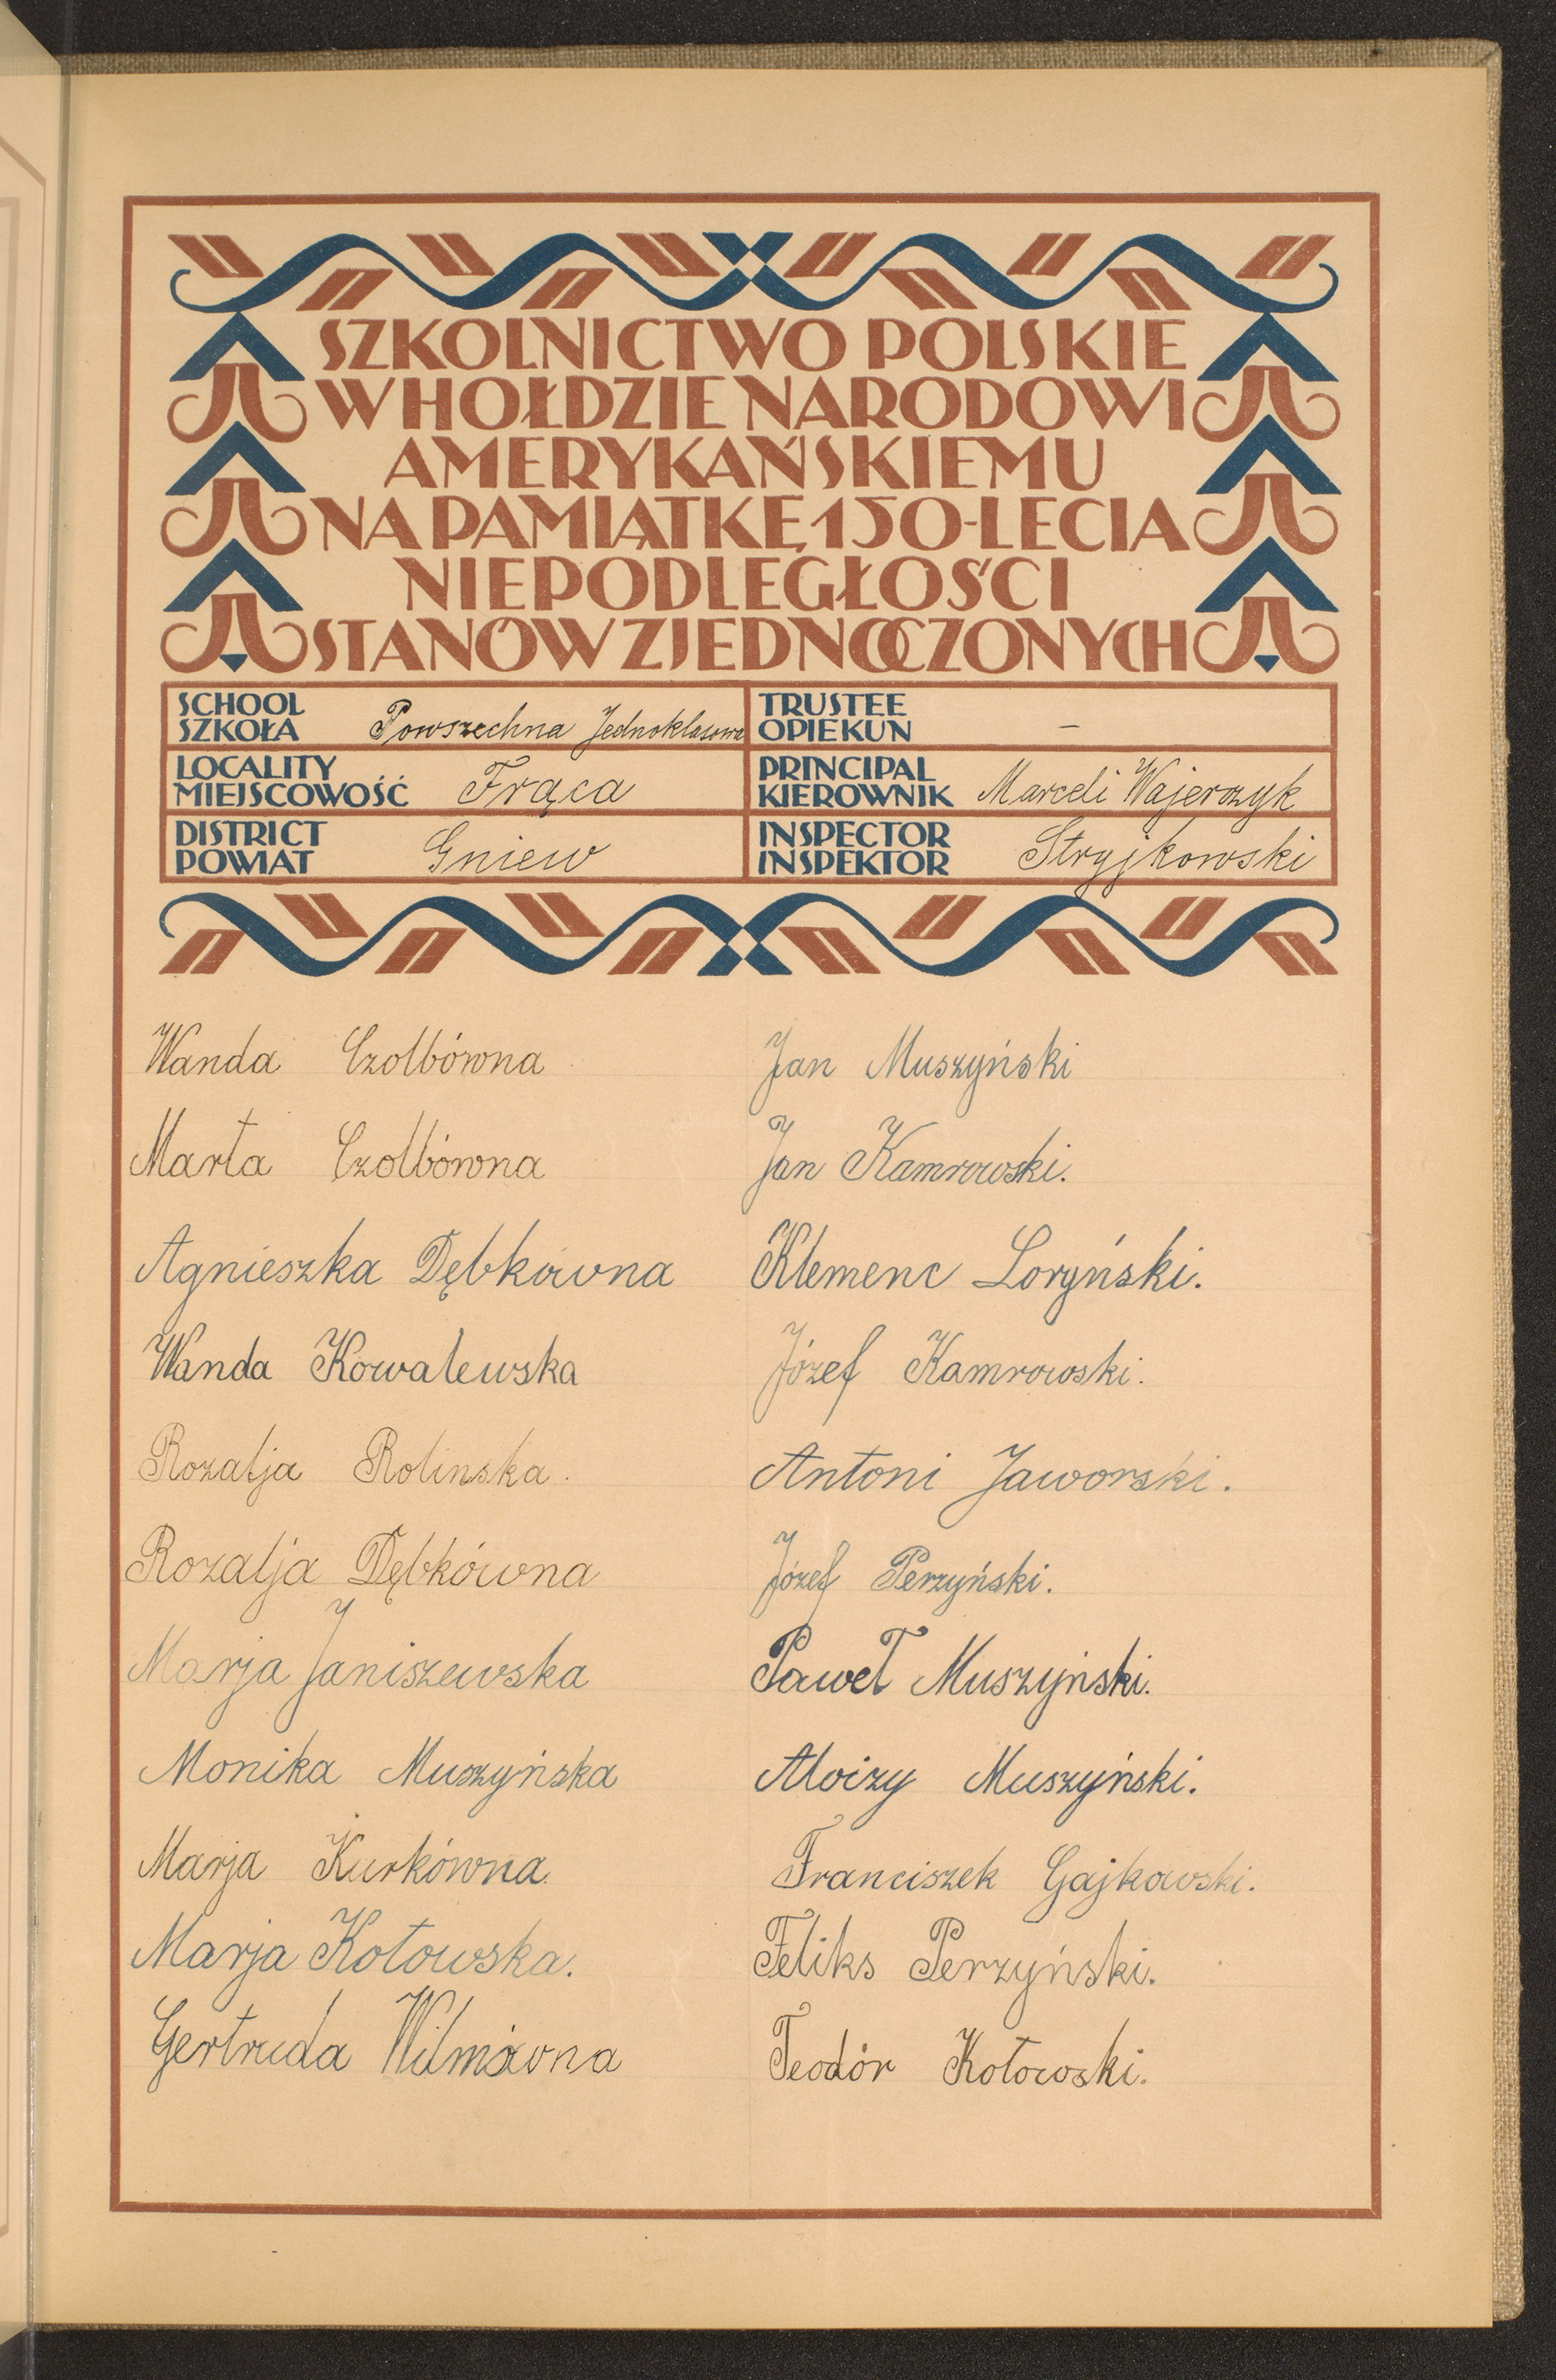 SZKOLNICTWO POLSKIE
W HOŁDZIE NARODOWI
AMERYKAŃSKIEMU
NA PAMIĄTKĘ 150-LECIA
NIEPODLEGŁOŚCI
STANÓW ZJEDNOCZONYCH
SCHOOL
SZKOŁA Powszechna Jednoklasowa
TRUSTEE
OPIEKUN –
LOCALITY
MIEJSCOWOŚĆ Frąca
PRINCIPAL
KIEROWNIK Marceli Wajerczyk
DISTRICT
POWIAT Gniew
INSPECTOR
INSPEKTOR Stryjkowski
Wanda Czolbówna
Marta Czolbówna
Agnieszka Dębkówna
Wanda Kowalewska
Rozalja Rolinska.
Rozalja Dębkówna
Marja Janiszewska
Monika Muszyńska
Marja Kurkówna.
Marja Kotowska.
Gertruda Wilmówna
Jan Muszyński
Jan Kamrowski.
Klemenc Loryński.
Józef Kamrowski.
Antoni Jaworski.
Józef Perzyński.
Paweł Muszyński.
Aloizy Muszyński.
Franciszek Gajkowski.
Feliks Perzyński.
Teodór Kotowski.